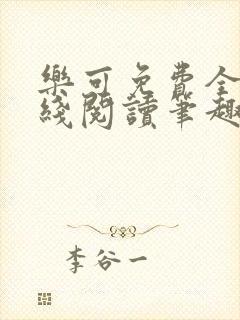 樂可免費全
綫閱讀筆趣
李谷一